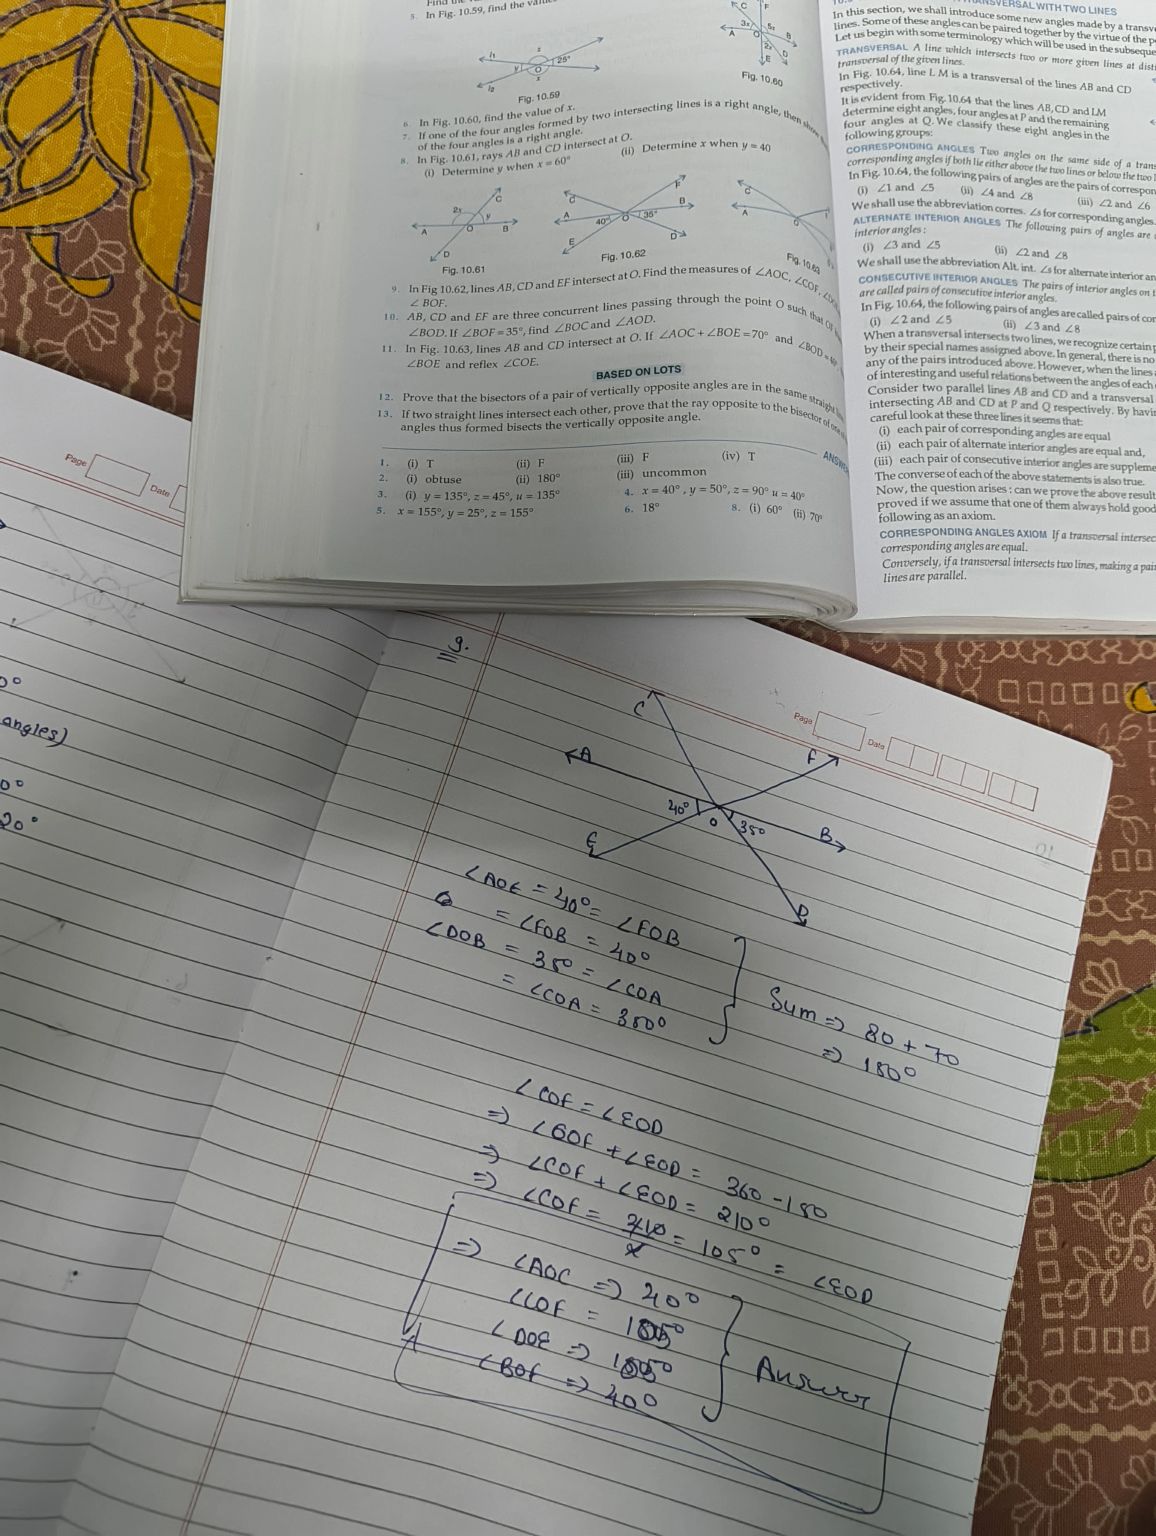 5. In Fig. 10.59, find the
l1
z
25°
y
O
x
l2
Fig. 10.59
C
F
3x
5x
A
O
B
2x
D
E
Fig. 10.60
6. In Fig. 10.60, find the value of x.
7. If one of the four angles formed by two intersecting lines is a right angle, then show
of the four angles is a right angle.
8. In Fig. 10.61, rays AB and CD intersect at O.
(i) Determine y when x = 60°
(ii) Determine x when y = 40
2x
C
y
A
O
B
D
Fig. 10.61
C
F
A
B
40°
O
35°
E
D
Fig. 10.62
C
A
O
Fig. 10.63
9. In Fig 10.62, lines AB, CD and EF intersect at O. Find the measures of ∠AOC, ∠COF,
∠ BOF.
10. AB, CD and EF are three concurrent lines passing through the point O such that OF
∠BOD. If ∠BOF = 35°, find ∠BOC and ∠AOD.
11. In Fig. 10.63, lines AB and CD intersect at O. If ∠AOC + ∠BOE = 70° and ∠BOD =
∠BOE and reflex ∠COE.
BASED ON LOTS
12. Prove that the bisectors of a pair of vertically opposite angles are in the same straight
13. If two straight lines intersect each other, prove that the ray opposite to the bisector of one
angles thus formed bisects the vertically opposite angle.
ANSWE
1. (i) T (ii) F (iii) F (iv) T
2. (i) obtuse (ii) 180° (iii) uncommon
3. (i) y = 135°, z = 45°, u = 135° 4. x = 40° , y = 50°, z = 90° u = 40°
5. x = 155°, y = 25°, z = 155° 6. 18° 8. (i) 60° (ii) 70°
TRANSVERSAL WITH TWO LINES
In this section, we shall introduce some new angles made by a transv
lines. Some of these angles can be paired together by the virtue of the p
Let us begin with some terminology which will be used in the subseque
TRANSVERSAL A line which intersects two or more given lines at dist
transversal of the given lines.
In Fig. 10.64, line L M is a transversal of the lines AB and CD
respectively.
It is evident from Fig. 10.64 that the lines AB, CD and LM
determine eight angles, four angles at P and the remaining
four angles at Q. We classify these eight angles in the
following groups:
CORRESPONDING ANGLES Two angles on the same side of a trans
corresponding angles if both lie either above the two lines or below the two l
In Fig. 10.64, the following pairs of angles are the pairs of correspon
(i) ∠1 and ∠5 (ii) ∠4 and ∠8 (iii) ∠2 and ∠6
We shall use the abbreviation corres. ∠s for corresponding angles.
ALTERNATE INTERIOR ANGLES The following pairs of angles are
interior angles :
(i) ∠3 and ∠5 (ii) ∠2 and ∠8
We shall use the abbreviation Alt. int. ∠s for alternate interior an
CONSECUTIVE INTERIOR ANGLES The pairs of interior angles on t
are called pairs of consecutive interior angles.
In Fig. 10.64, the following pairs of angles are called pairs of con
(i) ∠2 and ∠5 (ii) ∠3 and ∠8
When a transversal intersects two lines, we recognize certain p
by their special names assigned above. In general, there is no
any of the pairs introduced above. However, when the lines
of interesting and useful relations between the angles of each
Consider two parallel lines AB and CD and a transversal
intersecting AB and CD at P and Q respectively. By havin
careful look at these three lines it seems that:
(i) each pair of corresponding angles are equal
(ii) each pair of alternate interior angles are equal and,
(iii) each pair of consecutive interior angles are suppleme
The converse of each of the above statements is also true.
Now, the question arises : can we prove the above result
proved if we assume that one of them always hold good
following as an axiom.
CORRESPONDING ANGLES AXIOM If a transversal intersec
corresponding angles are equal.
Conversely, if a transversal intersects two lines, making a pai
lines are parallel.
Page
Date
0°
angles)
0°
20°
9.
Page
Date
C
A
F
40°
O
35°
B
E
D
∠AOE = 40° = ∠FOB
= ∠FOB = 40°
∠DOB = 35° = ∠COA
= ∠COA = 350°
Sum => 80 + 70
=> 150°
∠COF = ∠EOD
=> ∠BOF + ∠EOD = 360 - 150
=> ∠COF + ∠EOD = 210°
=> ∠COF = 210/2 = 105° = ∠EOD
=> ∠AOC => 40°
∠COF = 105°
∠DOE => 105°
∠BOF => 40°
Answer